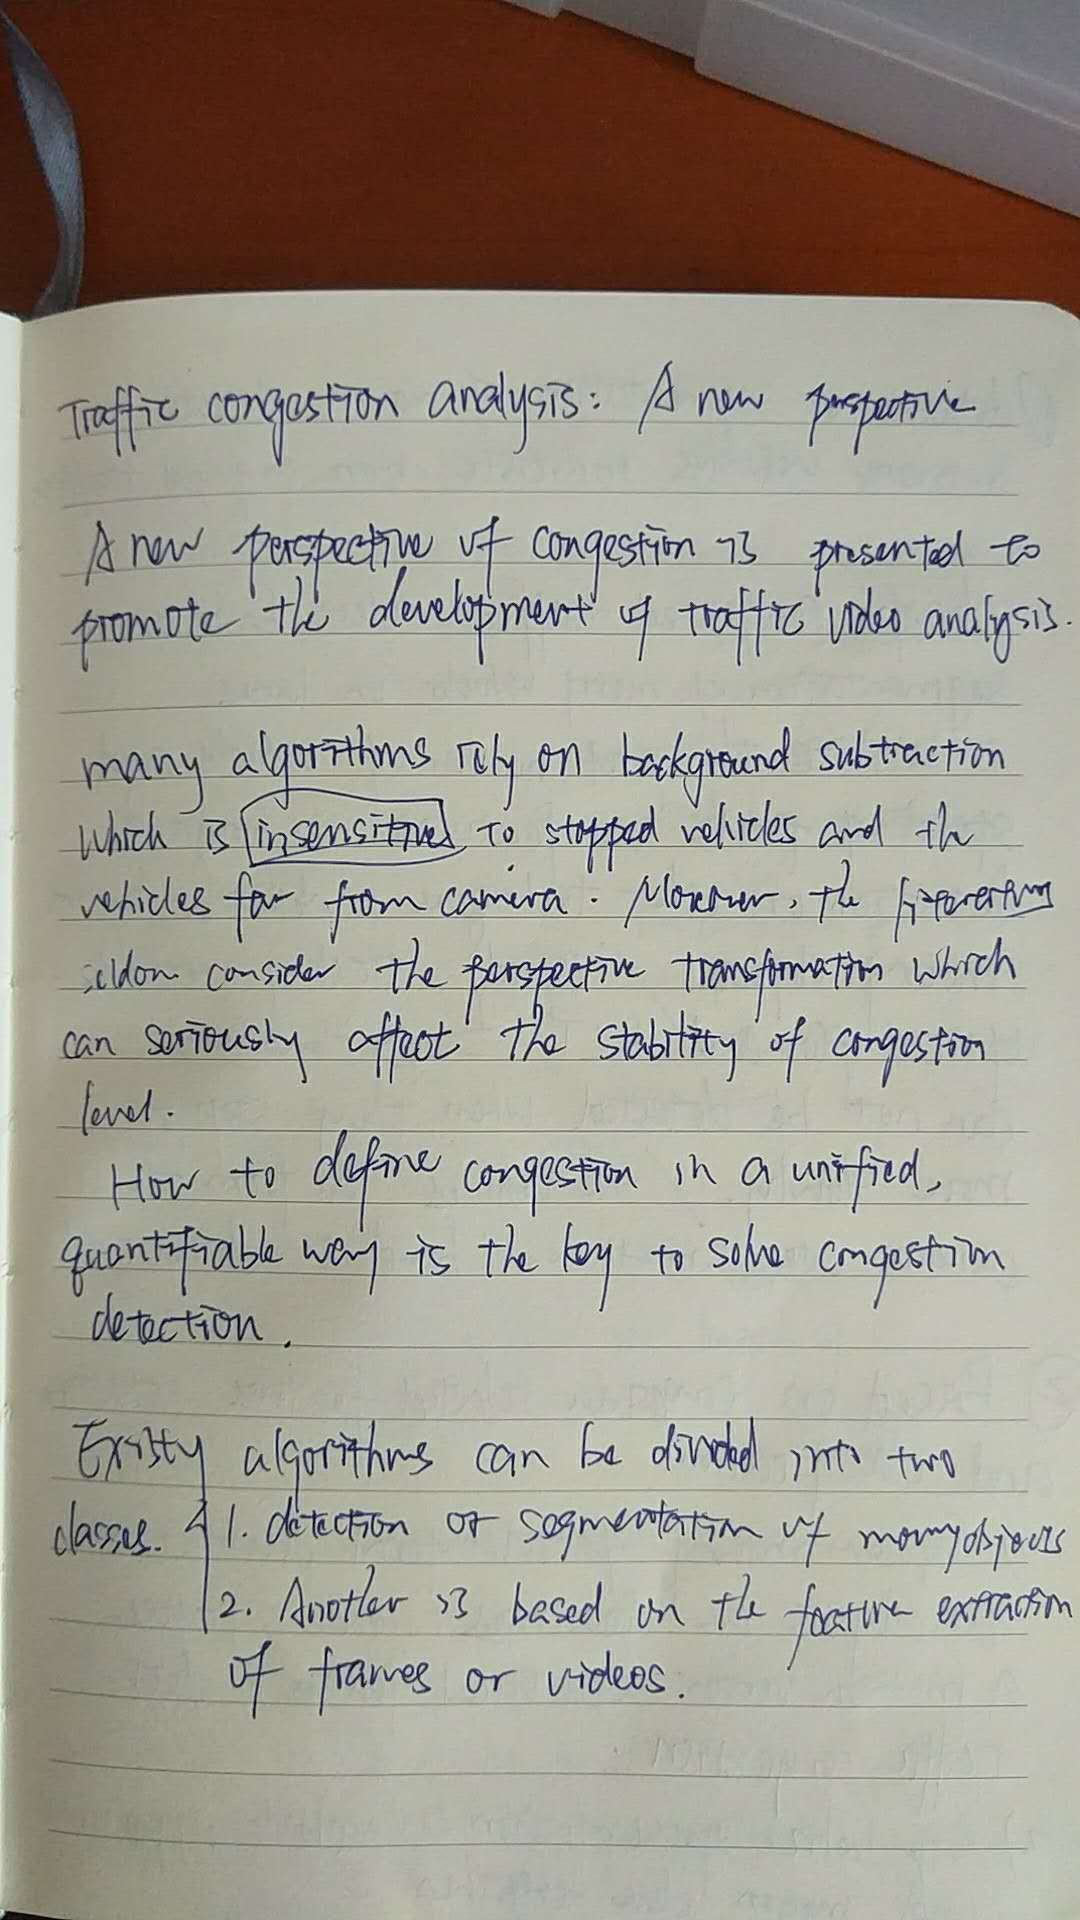 Traffic congestion analysis: A new perspective
A new perspective of congestion is presented to
promote the development of traffic video analysis.
many algorithms rely on background subtraction
which is insensitive to stopped vehicles and the
vehicles far from camera. Moreover, the
seldom consider the perspective transformation which
can seriously affect the stability of congestion
level.
How to define congestion in a unified,
quantifiable way is the key to solve congestion
detection.
Existy algorithms can be divided into two
classes. 1. detection or segmentation of objects
2. Another is based on the feature extraction
of frames or videos.